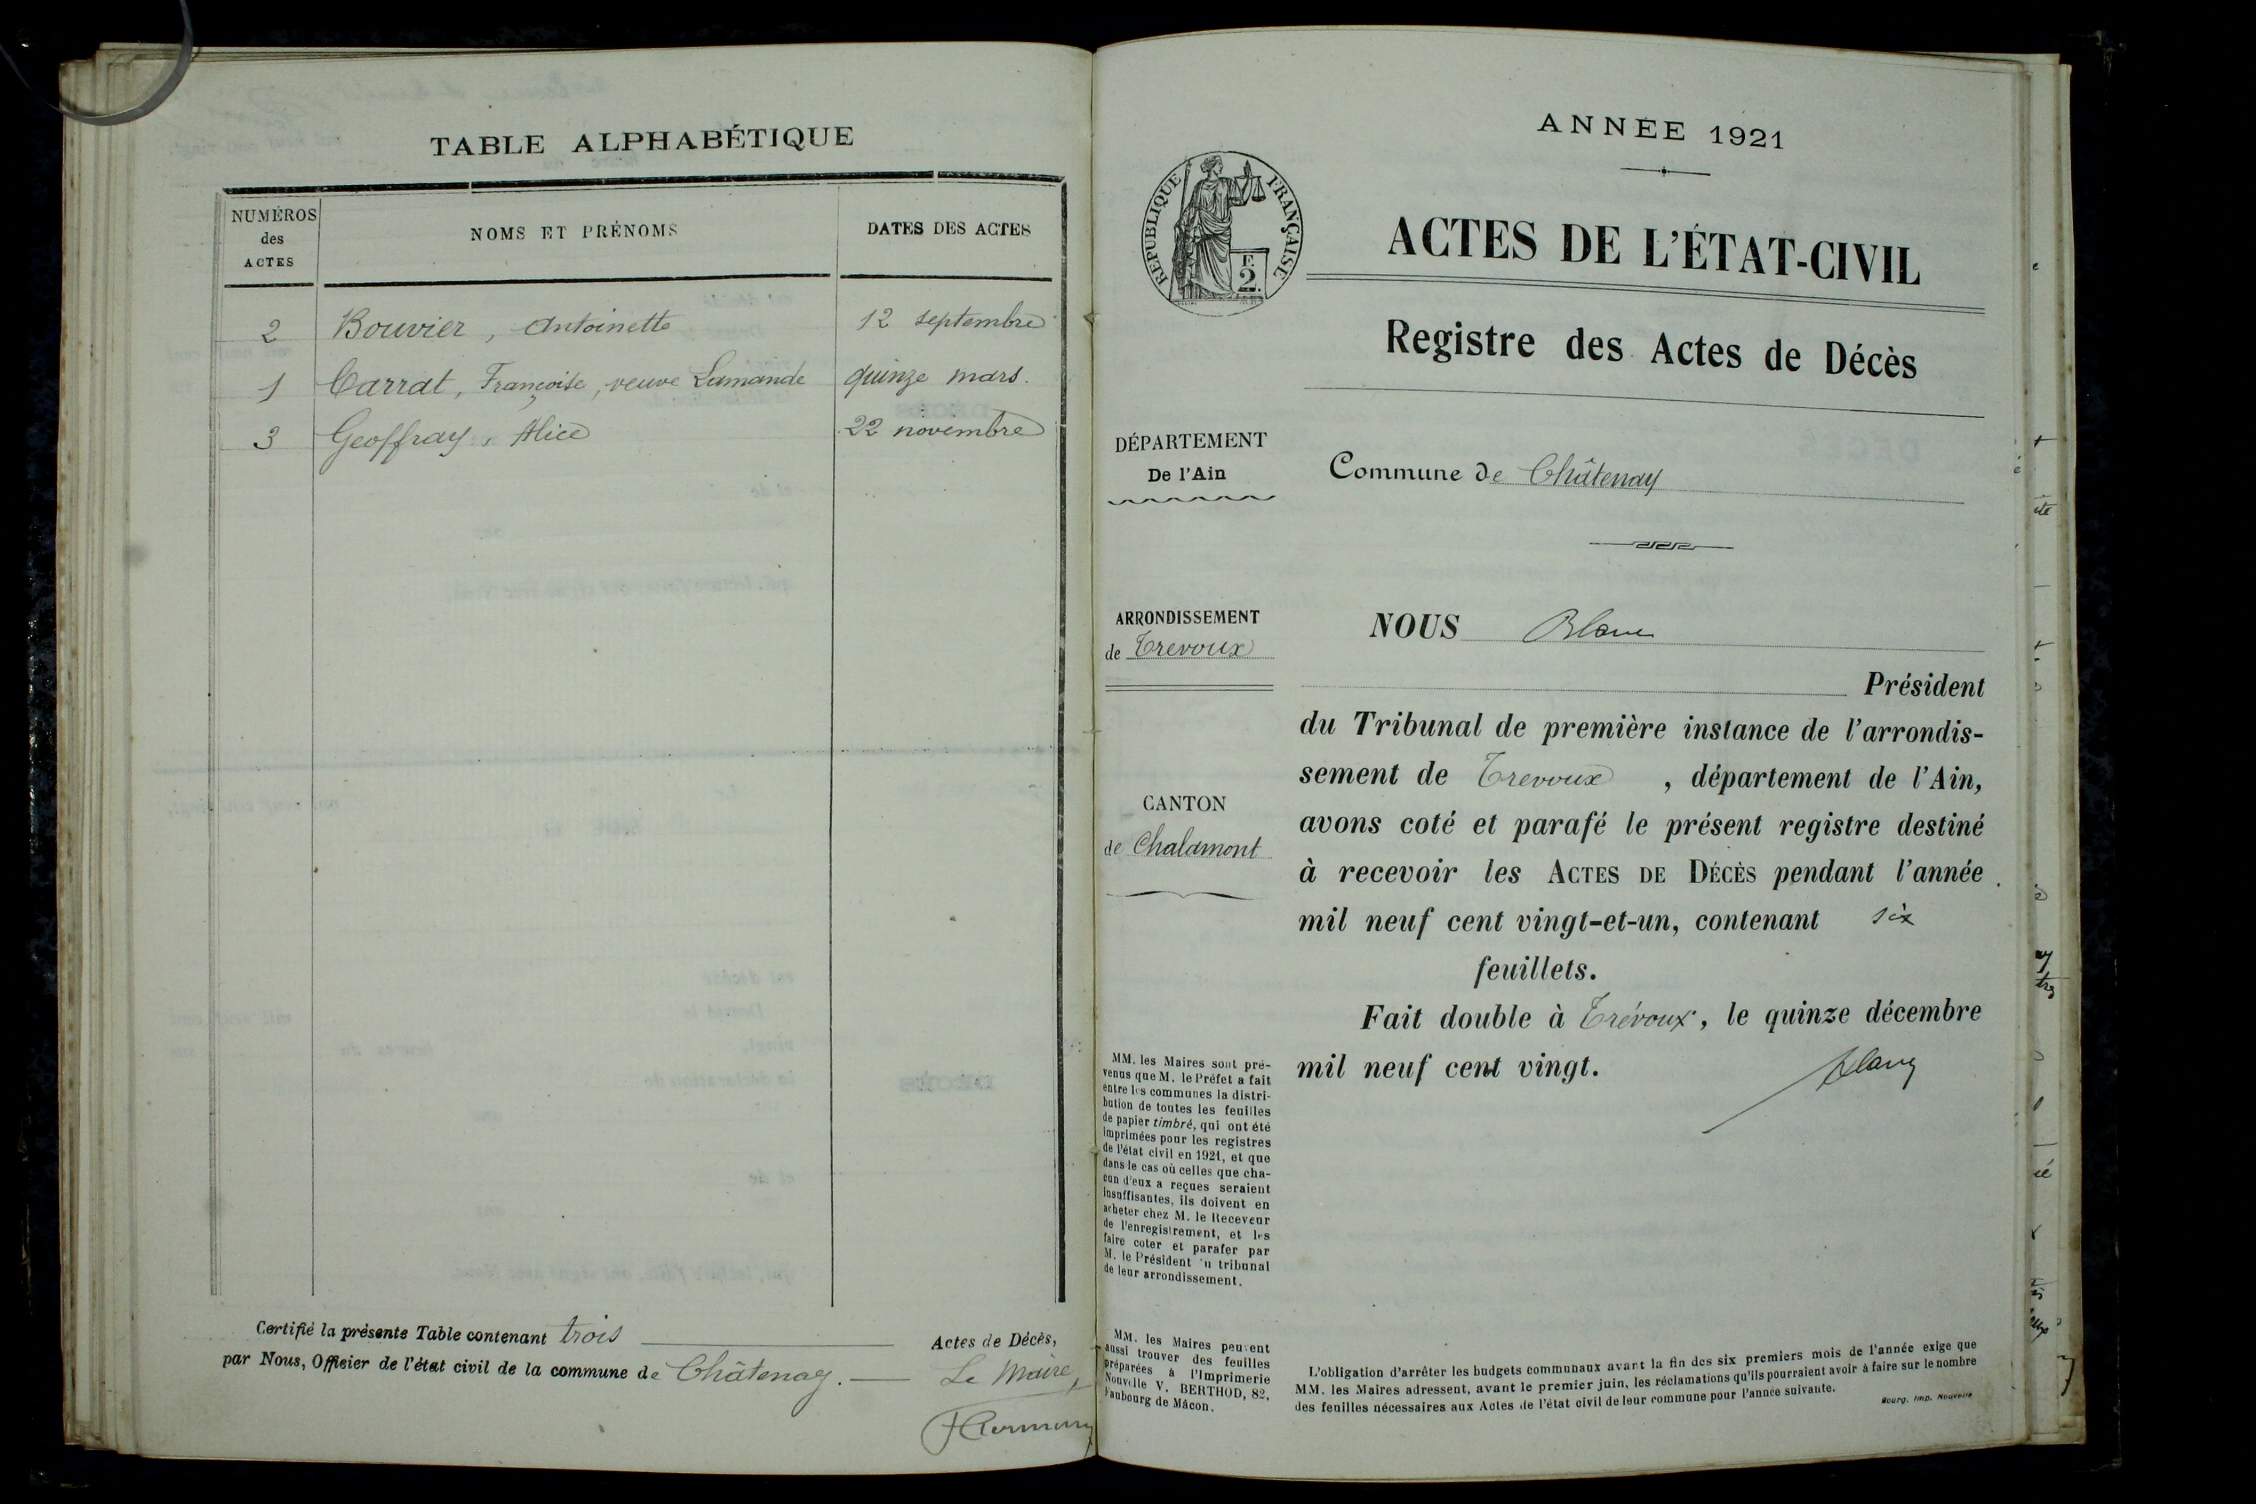 TABLE ALPHABÉTIQUE
NUMÉROS
des
ACTES
NOMS ET PRÉNOMS
DATES DES ACTES
2 Bouvier, Antoinette 12 septembre
1 Carrat, Françoise, veuve Lamande quinze mars.
3 Geoffray, Alice 22 novembre
Certifié la présente Table contenant trois Actes de Décès,
par Nous, Officier de l'état civil de la commune de Châtenay.
Le Maire,
ANNÉE 1921
RÉPUBLIQUE FRANÇAISE
F.
2.
ACTES DE L'ÉTAT-CIVIL
Registre des Actes de Décès
DÉPARTEMENT
De l'Ain
Commune de Châtenay
ARRONDISSEMENT
de Trevoux
CANTON
de Chalamont
NOUS Blanc
Président
du Tribunal de première instance de l'arrondis-
sement de Trevoux, département de l'Ain,
avons coté et parafé le présent registre destiné
à recevoir les ACTES DE DÉCÈS pendant l'année
mil neuf cent vingt-et-un, contenant six
feuillets.
Fait double à Trévoux, le quinze décembre
mil neuf cent vingt.
Blanc
MM. les Maires sont pré-
venus que M. le Préfet a fait
entre les communes la distri-
bution de toutes les feuilles
de papier timbré, qui ont été
imprimées pour les registres
de l'état civil en 1921, et que
dans le cas où celles que cha-
cun d'eux a reçues seraient
insuffisantes, ils doivent en
acheter chez M. le Receveur
de l'enregistrement, et les
faire coter et parafer par
M. le Président du tribunal
de leur arrondissement.
MM. les Maires peuvent
aussi trouver des feuilles
préparées à l'Imprimerie
Nouvelle V. BERTHOD, 82,
Faubourg de Mâcon.
L'obligation d'arrêter les budgets communaux avant la fin des six premiers mois de l'année exige que
MM. les Maires adressent, avant le premier juin, les réclamations qu'ils pourraient avoir à faire sur le nombre
des feuilles nécessaires aux Actes de l'état civil de leur commune pour l'année suivante.
Bourg. Imp. Nouvelle